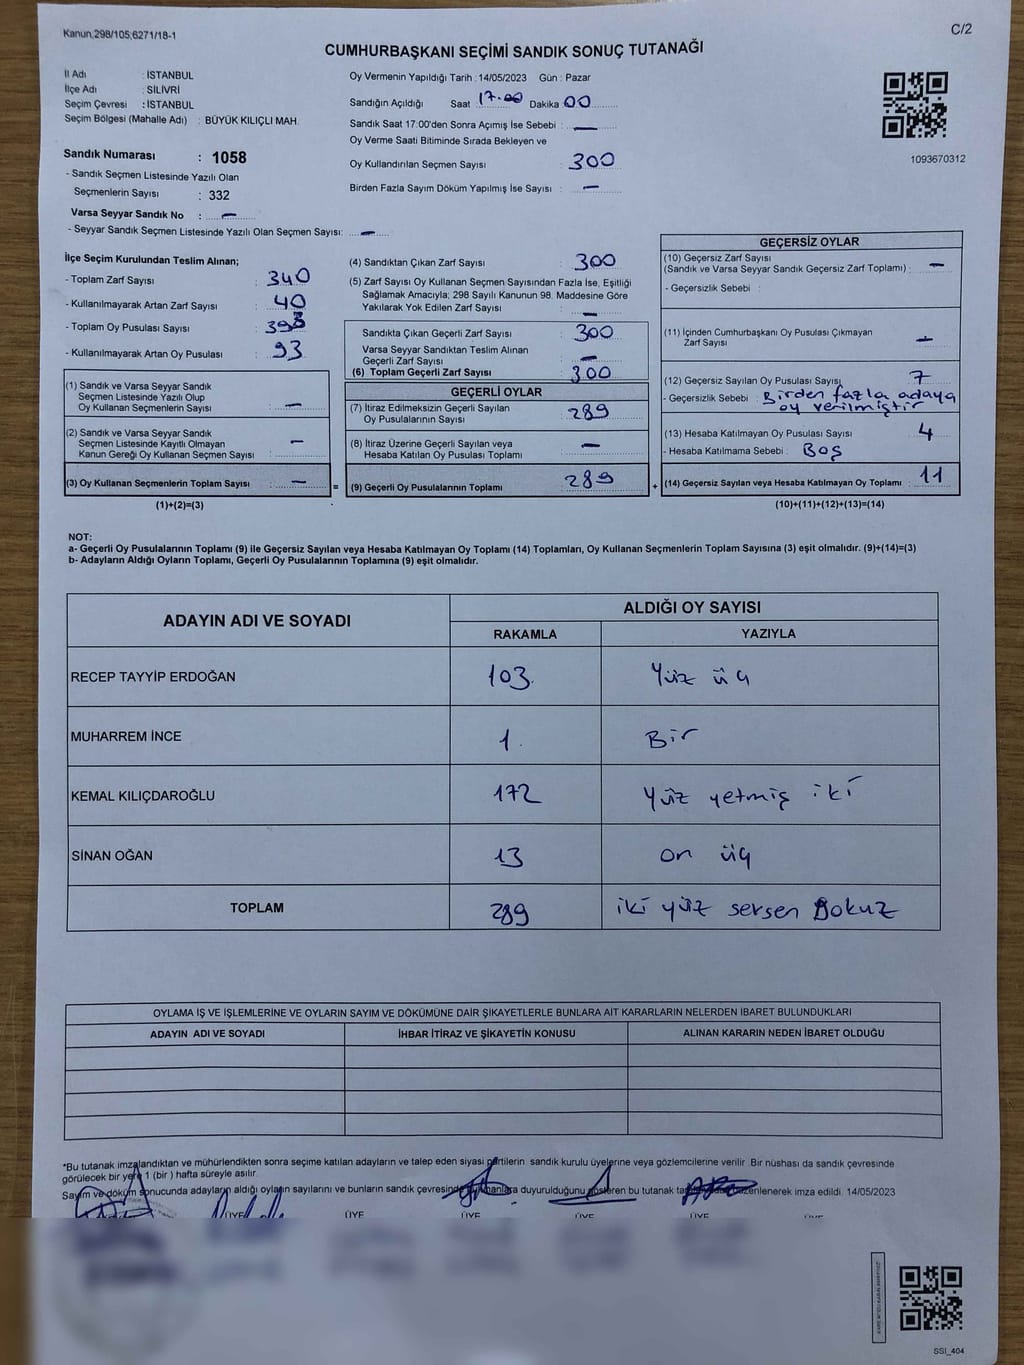 Kanun,298/105,6271/18-1
C/2
CUMHURBAŞKANI SEÇİMİ SANDIK SONUÇ TUTANAĞI
İl Adı : İSTANBUL
İlçe Adı : SİLİVRİ
Seçim Çevresi : İSTANBUL
Seçim Bölgesi (Mahalle Adı) : BÜYÜK KILIÇLI MAH.
Sandık Numarası : 1058
- Sandık Seçmen Listesinde Yazılı Olan
Seçmenlerin Sayısı : 332
Varsa Seyyar Sandık No : —
- Seyyar Sandık Seçmen Listesinde Yazılı Olan Seçmen Sayısı: —
Oy Vermenin Yapıldığı Tarih : 14/05/2023 Gün : Pazar
Sandığın Açıldığı Saat 17.00 Dakika 00
Sandık Saat 17:00'den Sonra Açımış İse Sebebi : —
Oy Verme Saati Bitiminde Sırada Bekleyen ve
Oy Kullandırılan Seçmen Sayısı : 300
Birden Fazla Sayım Döküm Yapılmış İse Sayısı : —
1093670312
İlçe Seçim Kurulundan Teslim Alınan;
- Toplam Zarf Sayısı : 340
- Kullanılmayarak Artan Zarf Sayısı : 40
- Toplam Oy Pusulası Sayısı : 393
- Kullanılmayarak Artan Oy Pusulası : 93
(1) Sandık ve Varsa Seyyar Sandık
Seçmen Listesinde Yazılı Olup
Oy Kullanan Seçmenlerin Sayısı : —
(2) Sandık ve Varsa Seyyar Sandık
Seçmen Listesinde Kayıtlı Olmayan
Kanun Gereği Oy Kullanan Seçmen Sayısı : —
(3) Oy Kullanan Seçmenlerin Toplam Sayısı : —
(1)+(2)=(3)
(4) Sandıktan Çıkan Zarf Sayısı : 300
(5) Zarf Sayısı Oy Kullanan Seçmen Sayısından Fazla İse, Eşitliği
Sağlamak Amacıyla; 298 Sayılı Kanunun 98. Maddesine Göre
Yakılarak Yok Edilen Zarf Sayısı : —
Sandıkta Çıkan Geçerli Zarf Sayısı : 300
Varsa Seyyar Sandıktan Teslim Alınan
Geçerli Zarf Sayısı : —
(6) Toplam Geçerli Zarf Sayısı : 300
GEÇERLİ OYLAR
(7) İtiraz Edilmeksizin Geçerli Sayılan
Oy Pusulalarının Sayısı : 289
(8) İtiraz Üzerine Geçerli Sayılan veya
Hesaba Katılan Oy Pusulası Toplamı : —
= (9) Geçerli Oy Pusulalarının Toplamı : 289 +
GEÇERSİZ OYLAR
(10) Geçersiz Zarf Sayısı
(Sandık ve Varsa Seyyar Sandık Geçersiz Zarf Toplamı) : —
- Geçersizlik Sebebi :
(11) İçinden Cumhurbaşkanı Oy Pusulası Çıkmayan
Zarf Sayısı : —
(12) Geçersiz Sayılan Oy Pusulası Sayısı : 7
- Geçersizlik Sebebi : Birden fazla adaya
oy verilmiştir
(13) Hesaba Katılmayan Oy Pusulası Sayısı : 4
- Hesaba Katılmama Sebebi : Boş
(14) Geçersiz Sayılan veya Hesaba Katılmayan Oy Toplamı : 11
(10)+(11)+(12)+(13)=(14)
NOT:
a- Geçerli Oy Pusulalarının Toplamı (9) ile Geçersiz Sayılan veya Hesaba Katılmayan Oy Toplamı (14) Toplamları, Oy Kullanan Seçmenlerin Toplam Sayısına (3) eşit olmalıdır. (9)+(14)=(3)
b- Adayların Aldığı Oyların Toplamı, Geçerli Oy Pusulalarının Toplamına (9) eşit olmalıdır.
ADAYIN ADI VE SOYADI
ALDIĞI OY SAYISI
RAKAMLA YAZIYLA
RECEP TAYYİP ERDOĞAN 103. Yüz üç
MUHARREM İNCE 1. Bir
KEMAL KILIÇDAROĞLU 172 Yüz yetmiş iki
SİNAN OĞAN 13 on üç
TOPLAM 289 iki yüz sersen Dokuz
OYLAMA İŞ VE İŞLEMLERİNE VE OYLARIN SAYIM VE DÖKÜMÜNE DAİR ŞİKAYETLERLE BUNLARA AİT KARARLARIN NELERDEN İBARET BULUNDUKLARI
ADAYIN ADI VE SOYADI İHBAR İTİRAZ VE ŞİKAYETİN KONUSU ALINAN KARARIN NEDEN İBARET OLDUĞU
*Bu tutanak imzalandıktan ve mühürlendikten sonra seçime katılan adayların ve talep eden siyasi partilerin sandık kurulu üyelerine veya gözlemcilerine verilir. Bir nüshası da sandık çevresinde
görülecek bir yere 1 (bir ) hafta süreyle asılır.
Sayım ve döküm sonucunda adayların aldığı oyların sayılarını ve bunların sandık çevresinde duyurulduğunu gösteren bu tutanak düzenlenerek imza edildi. 14/05/2023
ÜYE ÜYE ÜYE ÜYE ÜYE
SSI_404